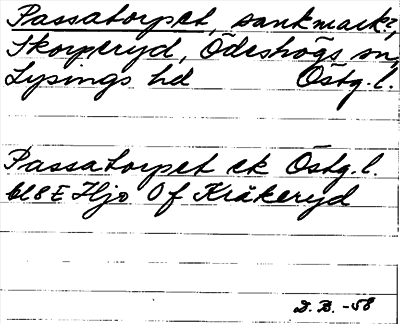 Passatorpet, sankmark?,
Skorperyd, Ödeshögs sn,
Lysings hd Östg.l.
Passatorpet ek Östg.l.
bl 8 E Hjo 0 f Kråkeryd
D. B. -58